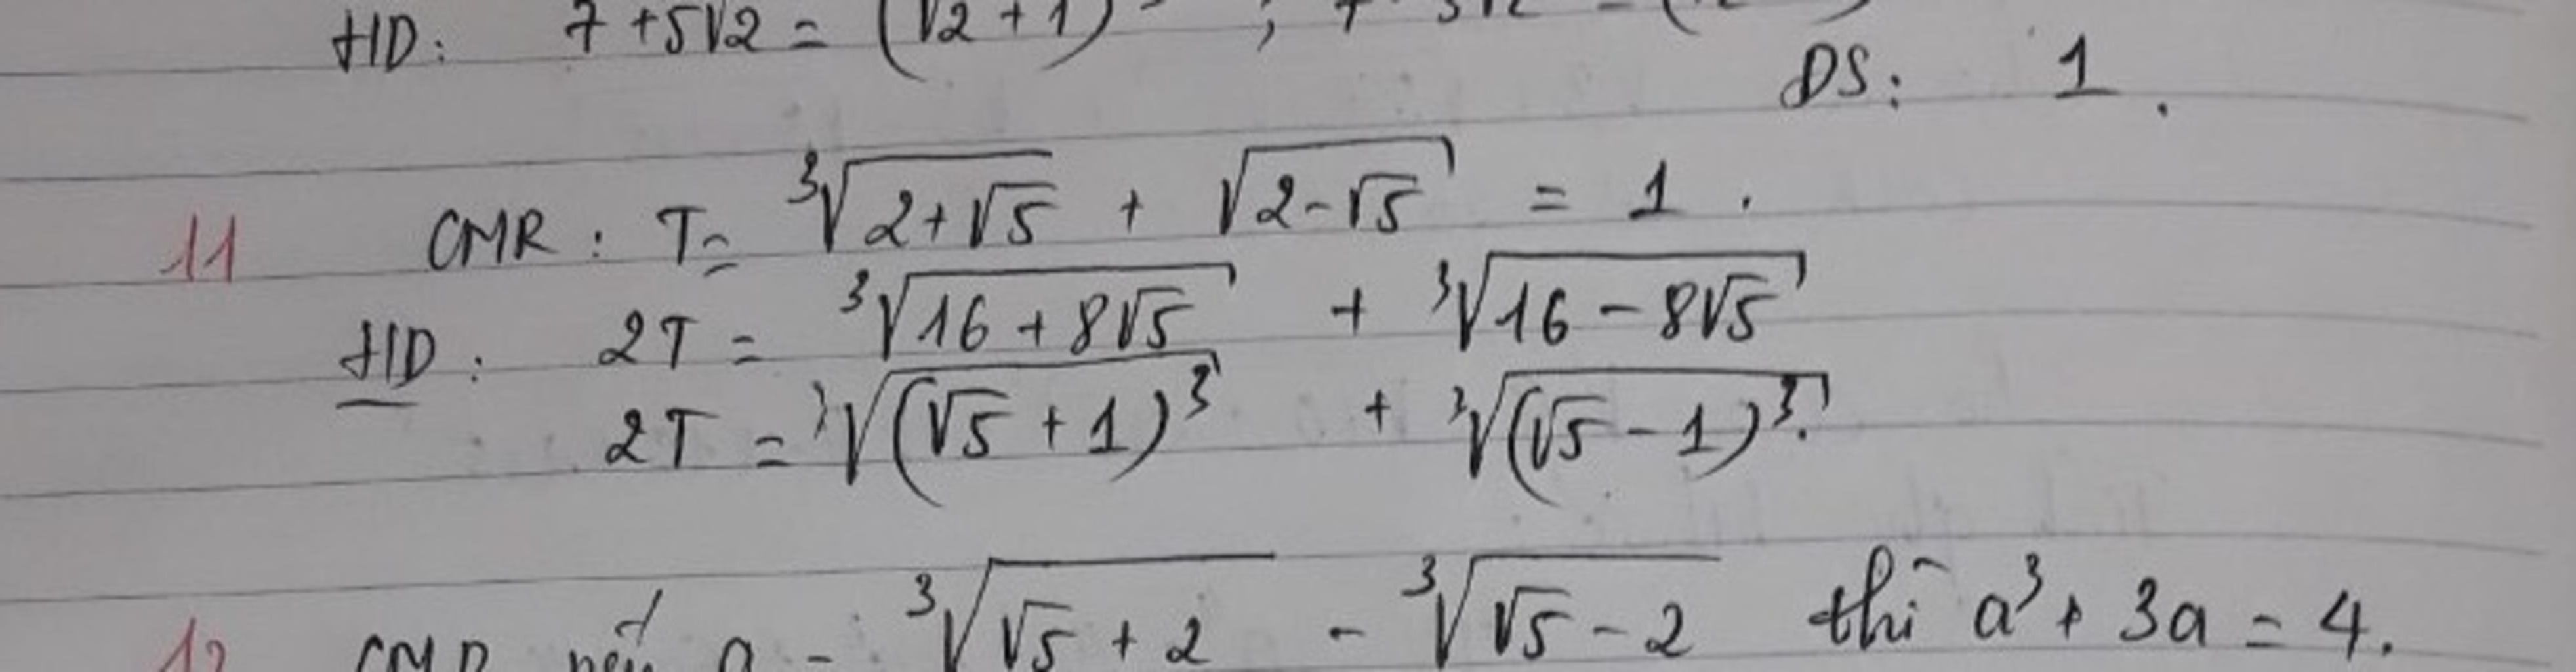 HD: 7 + 5√2 = (√2 + 1)
ĐS: 1.
11 CMR: T = ∛(2+√5) + √(2-√5) = 1.
HD: 2T = ∛(16 + 8√5) + ∛(16 - 8√5)
2T = ∛((√5 + 1)³) + ∛((√5 - 1)³).
12 CMR nếu a = ∛(√5 + 2) - ∛(√5 - 2) thì a³ + 3a = 4.